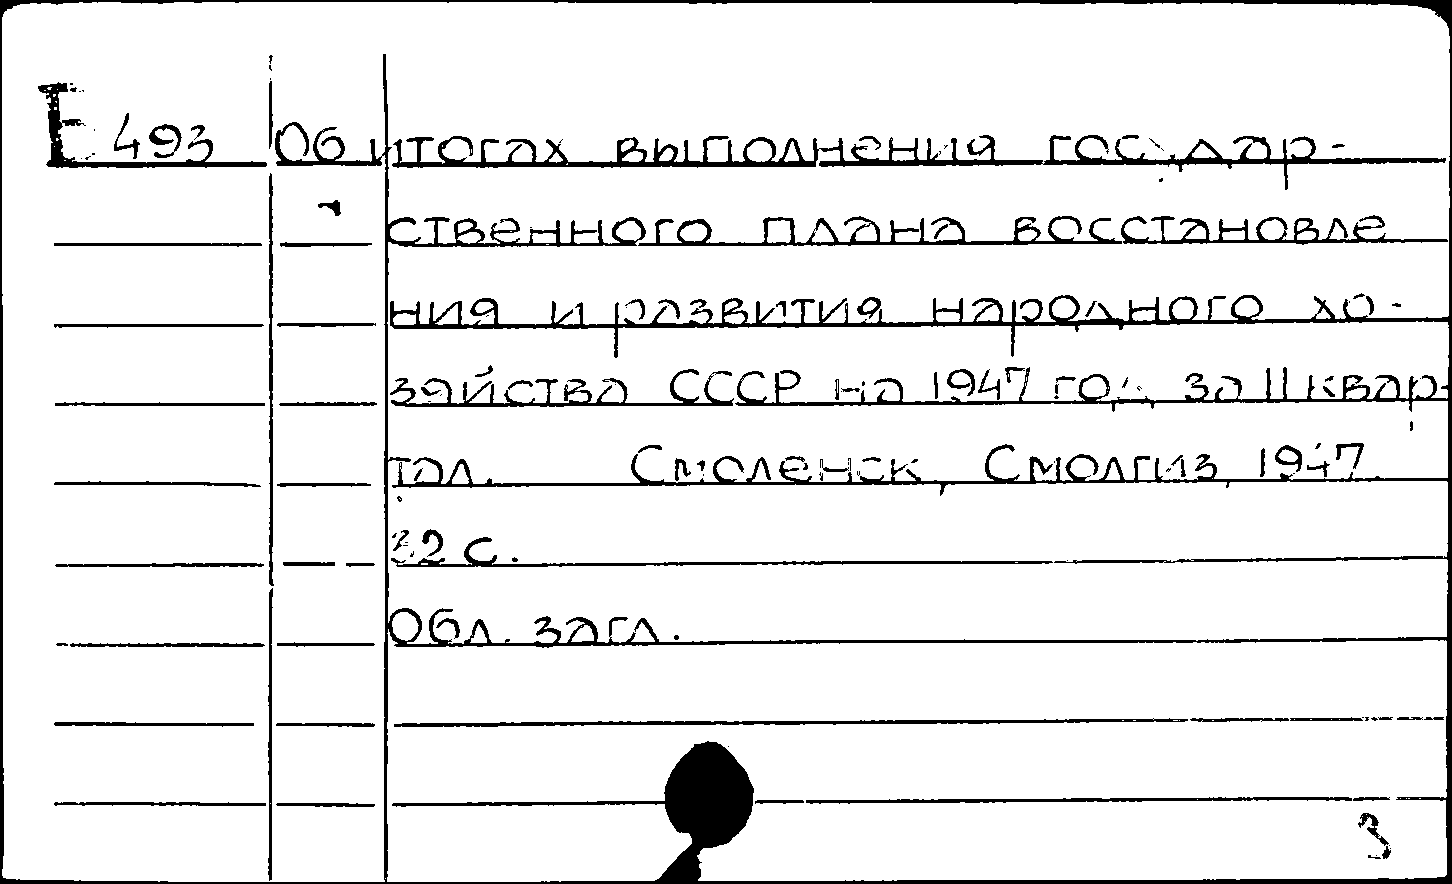 Е 493 Об итогах выполнения государ-
ственного плана восстановле
ния и развития народного хо-
зяйства СССР на 1947 год за II квар-
тал. Смоленск, Смолгиз, 1947.
32 с.
Обл. загл.
3